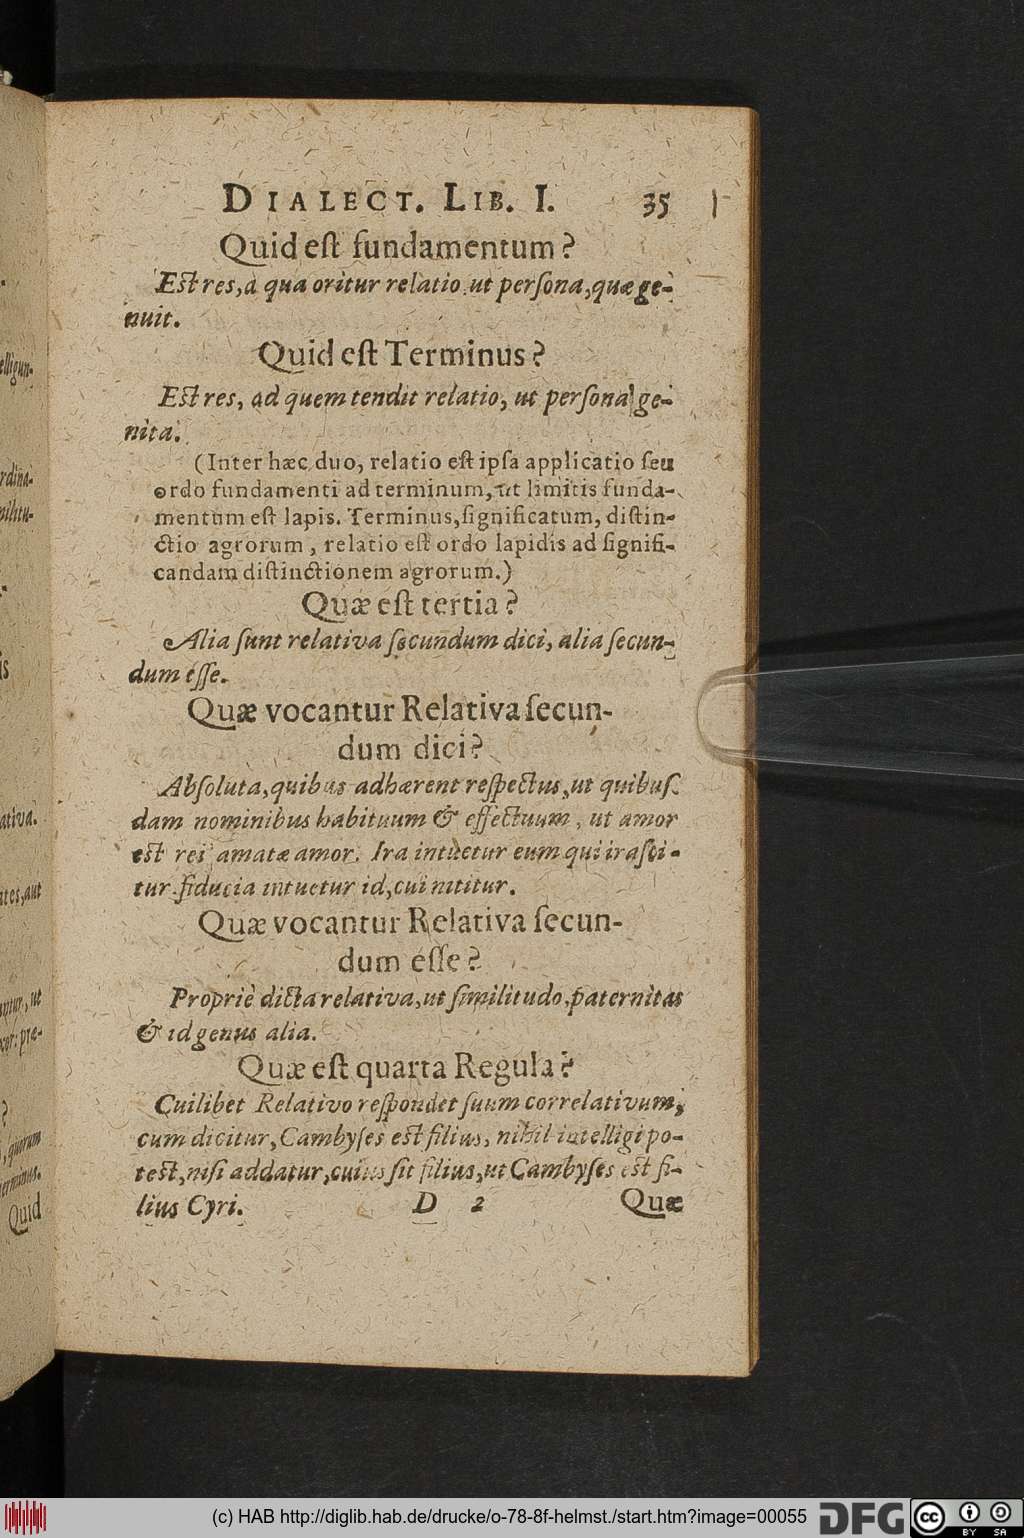 DIALECT. LIB. I. 35
Quid eſt fundamentum?
Est res, à qua oritur relatio ut perſona, quæ ge-
nuit.
Quid eſt Terminus?
Est res, ad quem tendit relatio, ut perſona ge-
nita.
(Inter hæc duo, relatio eſt ipſa applicatio ſeu
ordo fundamenti ad terminum, ut limitis funda-
mentum eſt lapis. Terminus, ſignificatum, diſtin-
ctio agrorum, relatio eſt ordo lapidis ad ſignifi-
candam diſtinctionem agrorum.)
Quæ eſt tertia?
Alia ſunt relativa ſecundum dici, alia ſecun-
dum eſſe.
Quæ vocantur Relativa ſecun-
dum dici?
Abſoluta, quibus adhærent reſpectus, ut quibuſ-
dam nominibus habituum & effectuum, ut amor
est rei amatæ amor. Ira intuetur eum qui iraſci-
tur. fiducia intuetur id, cui nititur.
Quæ vocantur Relativa ſecun-
dum eſſe?
Propriè dicta relativa, ut ſimilitudo, paternitas
& id genus alia.
Quæ eſt quarta Regula?
Cuilibet Relativo reſpondet ſuum correlativum,
cum dicitur, Cambyſes est filius, nihil intelligi po-
test, niſi addatur, cuius ſit filius, ut Cambyſes est fi-
lius Cyri. D 2 Quæ
elligun-
rdina-
militu-
is
ativa.
ates, aut
ntur, ut
cor: præ-
?
, quorum
terminus.
Quid
(c) HAB http://diglib.hab.de/drucke/o-78-8f-helmst./start.htm?image=00055 DFG cc BY SA